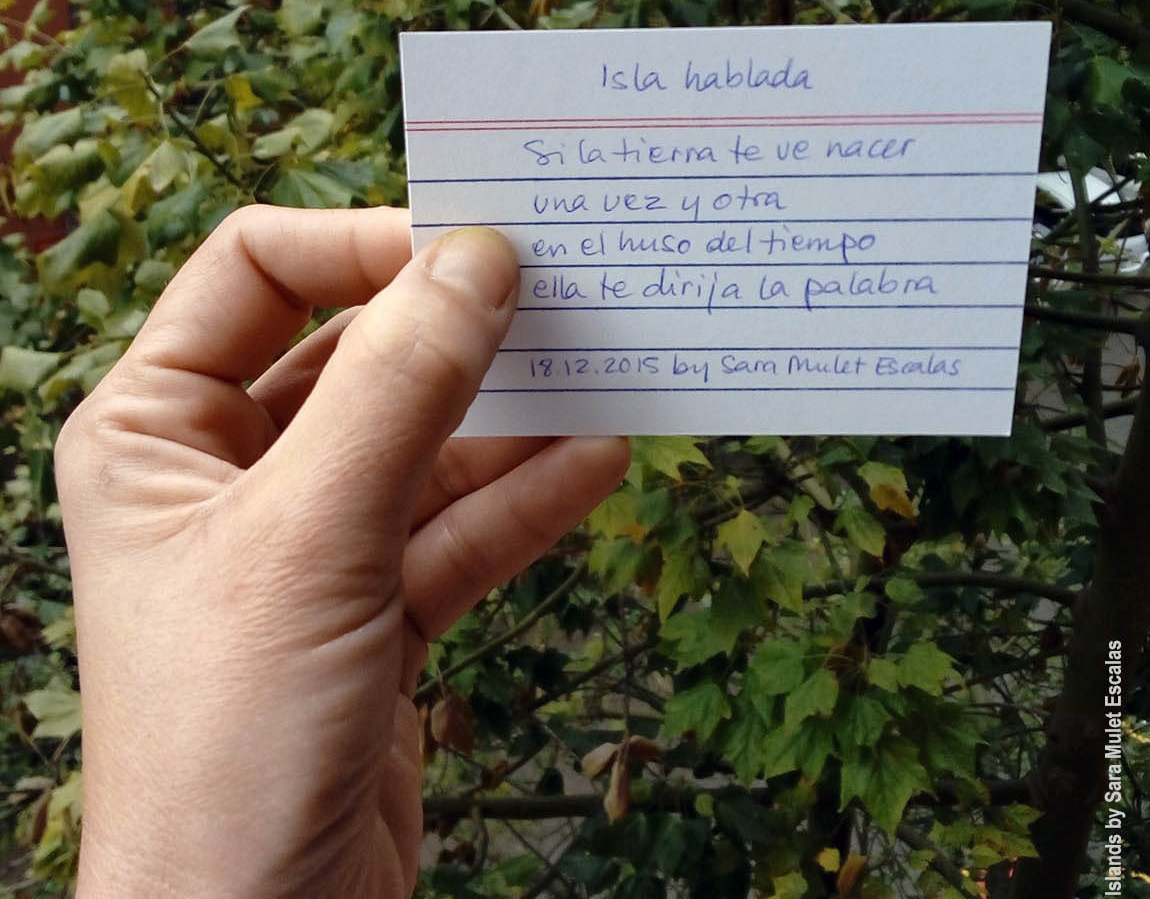 Isla hablada
Si la tierra te ve nacer
una vez y otra
en el huso del tiempo
ella te dirija la palabra
18.12.2015 by Sara Mulet Escalas
Islands by Sara Mulet Escalas